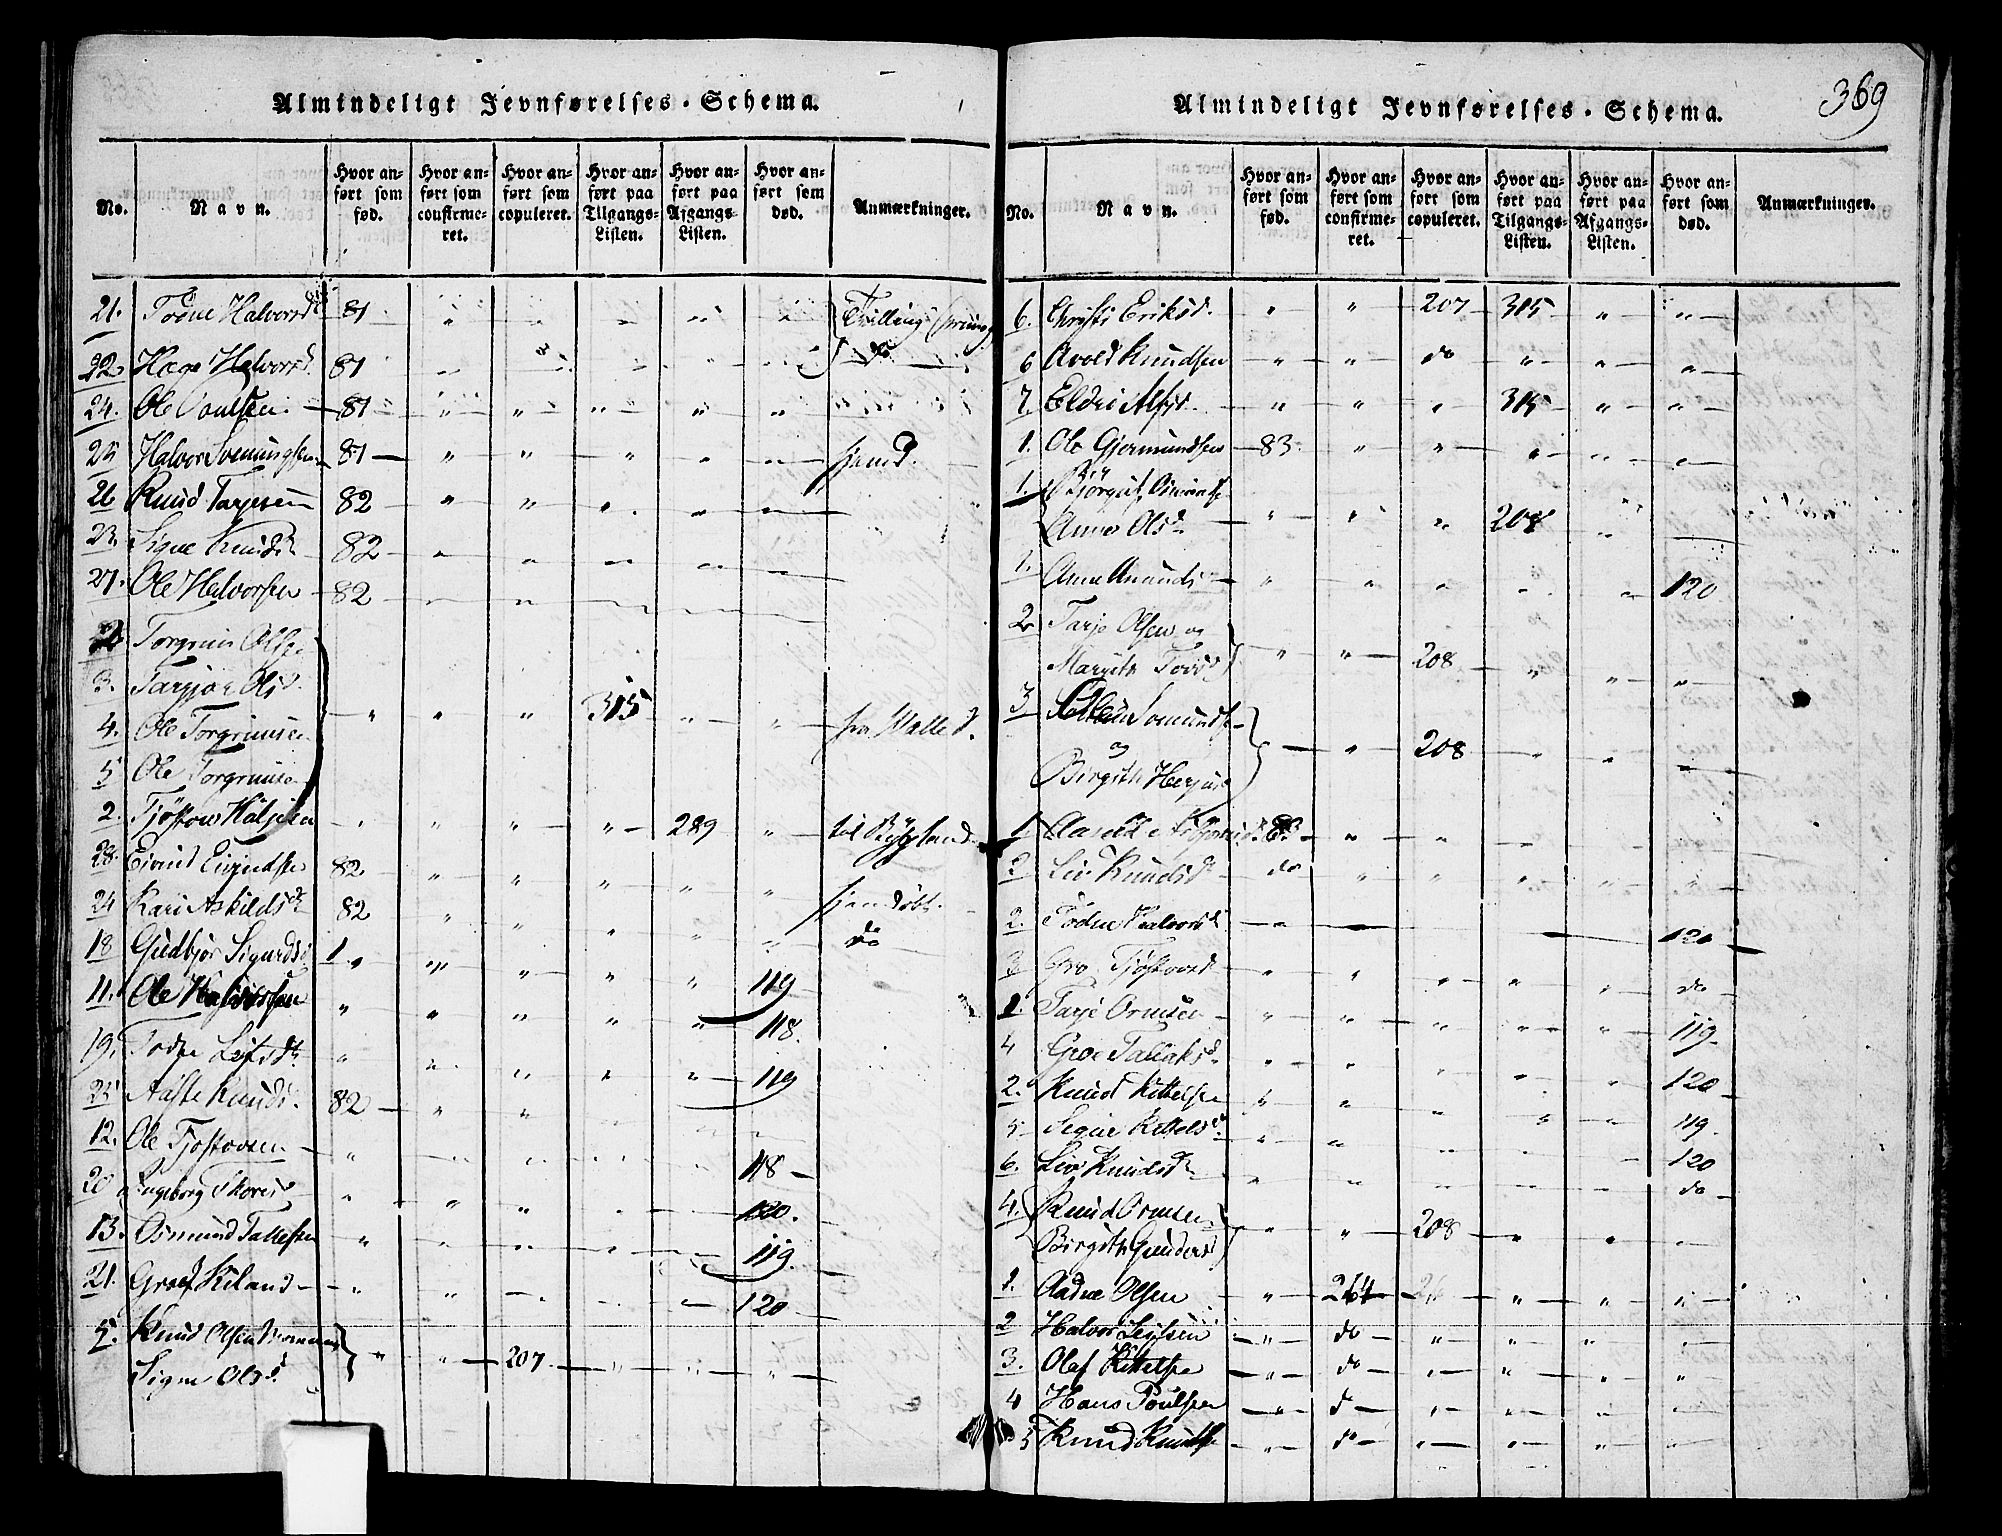 Almindeligt Jevnførelses-Schema.
No.
Navn.
Hvor anført som fød.
Hvor anført som confirmeret.
Hvor anført som copuleret.
Hvor anført paa Tilgangs-Listen.
Hvor anført paa Afgangs-Listen.
Hvor anført som død.
Anmærkninger.
21. Todne Halvorsd 81 " " " " " Trilling
22. Hæge Halvorsd. 81 do
24. Ole Poulsen 81 " " " " "
25 Halvor Sveinungsen 81 " " " " " hjemd.
26 Knud Tarjesen 82 " " "
23. Signe Knudsd 82 " " " " "
27. Ole Halvorsen 82 " "
Torgrim Olsen
3. Targjer Olsd
4. Ole Torgrimsen " " " 315 " " fra Valle
5 Ole Torgrimsen
2. Tjøstov " " " " 289 " til Bygland
28. Eivind Eivindsen 82. " " " " "
24 Kari Askildsd 82 " " " " " do
18 Gudbjør Sigurdsd 1. " " " " " 119
11. Ole Halvorsen " " " " " 118.
19. Todne Leifsd " " " " " 119
25 Aaste Knudsd. 82 " "
12. Ole Tjøstovsen " " " 118
20 Ingeborg Thoresd " " " " 120.
13. Osmund Tallefsen " " " " " 119.
21. Groe Kiland " " 120
5. Knud Olsen
Signe Olsd. " " 207 " " "
Almindeligt Jevnførelses-Schema.
369
No.
Navn.
Hvor anført som fød.
Hvor anført som confirmeret.
Hvor anført som copuleret.
Hvor anført paa Tilgangs-Listen.
Hvor anført paa Afgangs-Listen.
Hvor anført som død.
Anmærkninger.
6. Christi Eriksd. " " 207 315 " "
6 Avold Knudsen " " do " " "
7. Eldri Alfsd. " " " 315 " "
1. Ole Gjermundsen 83 " " " " "
1. Bjørgulf
Anne Olsd " " " 208 " "
1. Anne Aanundsd " " " " " 120
2 Tarje Olsen og
Margith Tovsd " " 208 " " "
3
og " 208 " " "
Birgith Herjusd
1. Aaseld 83 " " "
2 Liv Knudsd do " " " " "
2. Todne Halvorsd " 120
3 Gro Tjøstovsd " " " " " do
1. Tarje Ormsen " " " " " 119
4 Groe Tallaksd. " " " " " 120
2. Knud Kittelsen " " " " " 119.
5 Signe Kittelsd. " " " " 120
6. Liv Knudsd " " " " " do
4. Knud Ormsen
Birgith Gundersd " " 208 " " "
1. Aadne Olsen " 264 " " "
2 Halvor Leifsen " do " " " "
3. Olaf Kittelsen " do " " " "
4 Hans Poulsen " d " " " "
5 Knud Knudsen " do " " " "